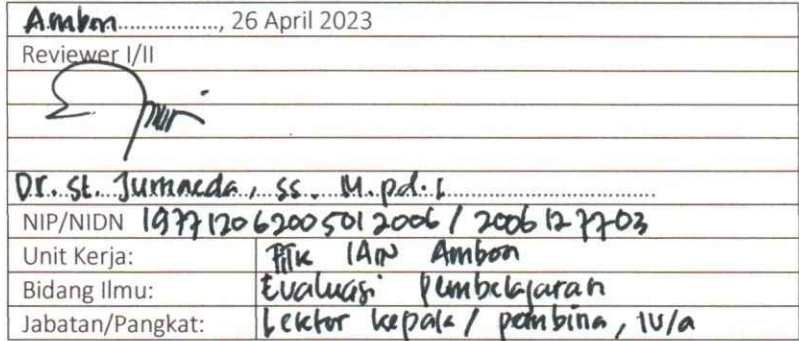 Ambon.................., 26 April 2023
Reviewer I/II
Dr. St. Jumaeda, SS. M.pd.I
NIP/NIDN 197712062005012006 / 2006127703
Unit Kerja: FITK IAIN Ambon
Bidang Ilmu: Evaluasi Pembelajaran
Jabatan/Pangkat: Lektor kepala / pembina, IV/a